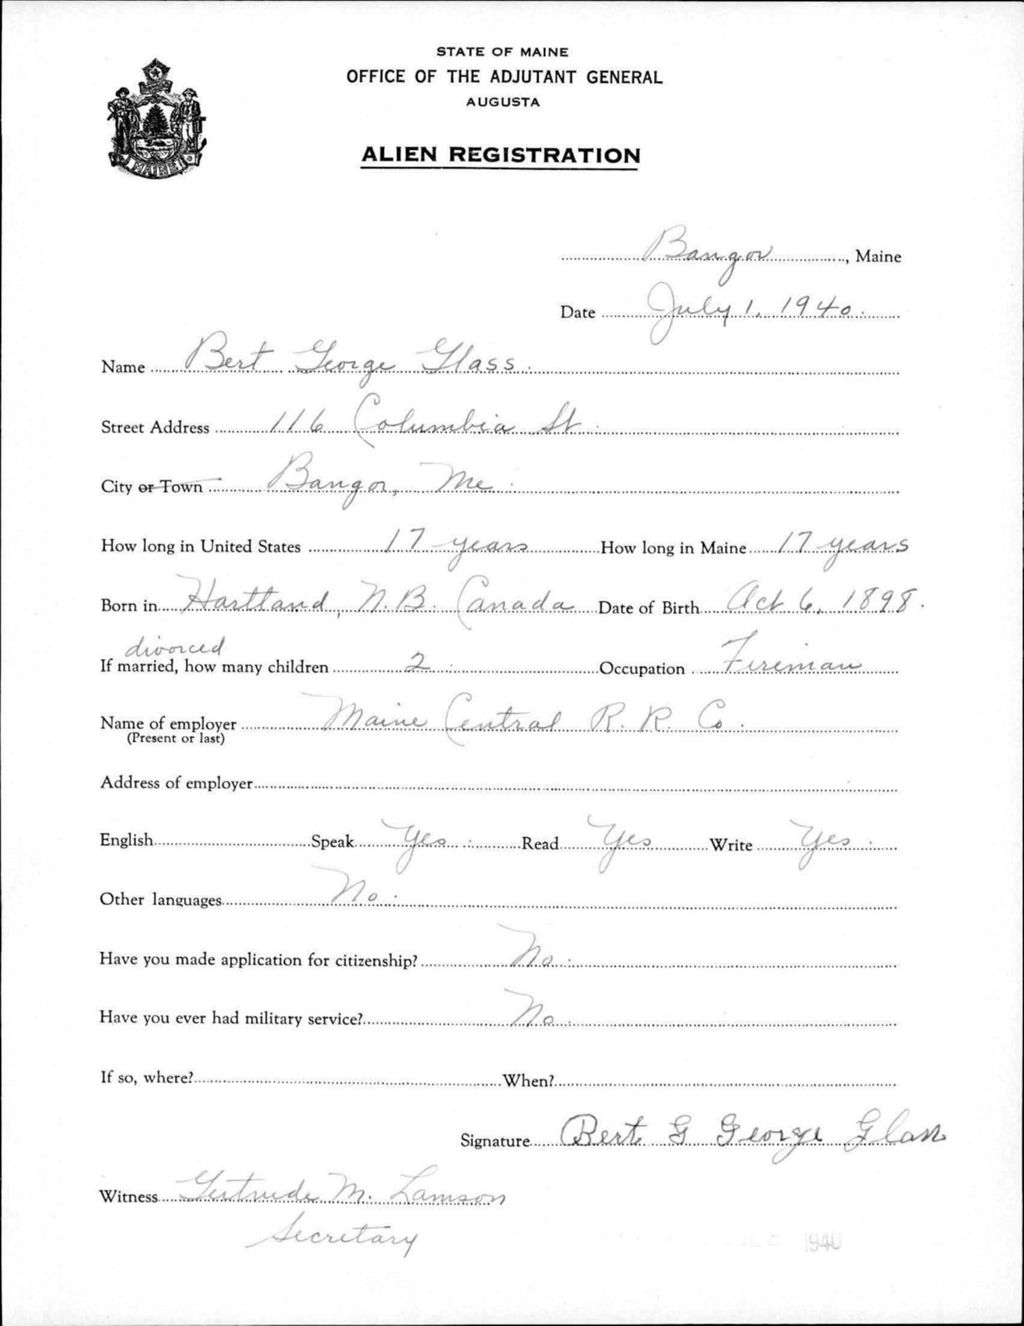 STATE OF MAINE
OFFICE OF THE ADJUTANT GENERAL
AUGUSTA
ALIEN REGISTRATION
MAINE
Bangor, Maine
Date July 1, 1940.
Name Bert George Glass.
Street Address 116 Columbia St.
City or Town Bangor, Me.
How long in United States 17 years How long in Maine 17 years
Born in Hartland, N.B. Canada Date of Birth Oct 6, 1898.
divorced
If married, how many children 2. Occupation Fireman
Name of employer Maine Central R. R. Co.
(Present or last)
Address of employer
English Speak Yes. Read Yes Write Yes.
Other languages No.
Have you made application for citizenship? No.
Have you ever had military service? No.
If so, where? When?
Signature Bert G George Glass
Witness Gertrude M. Lamson
Secretary
1940